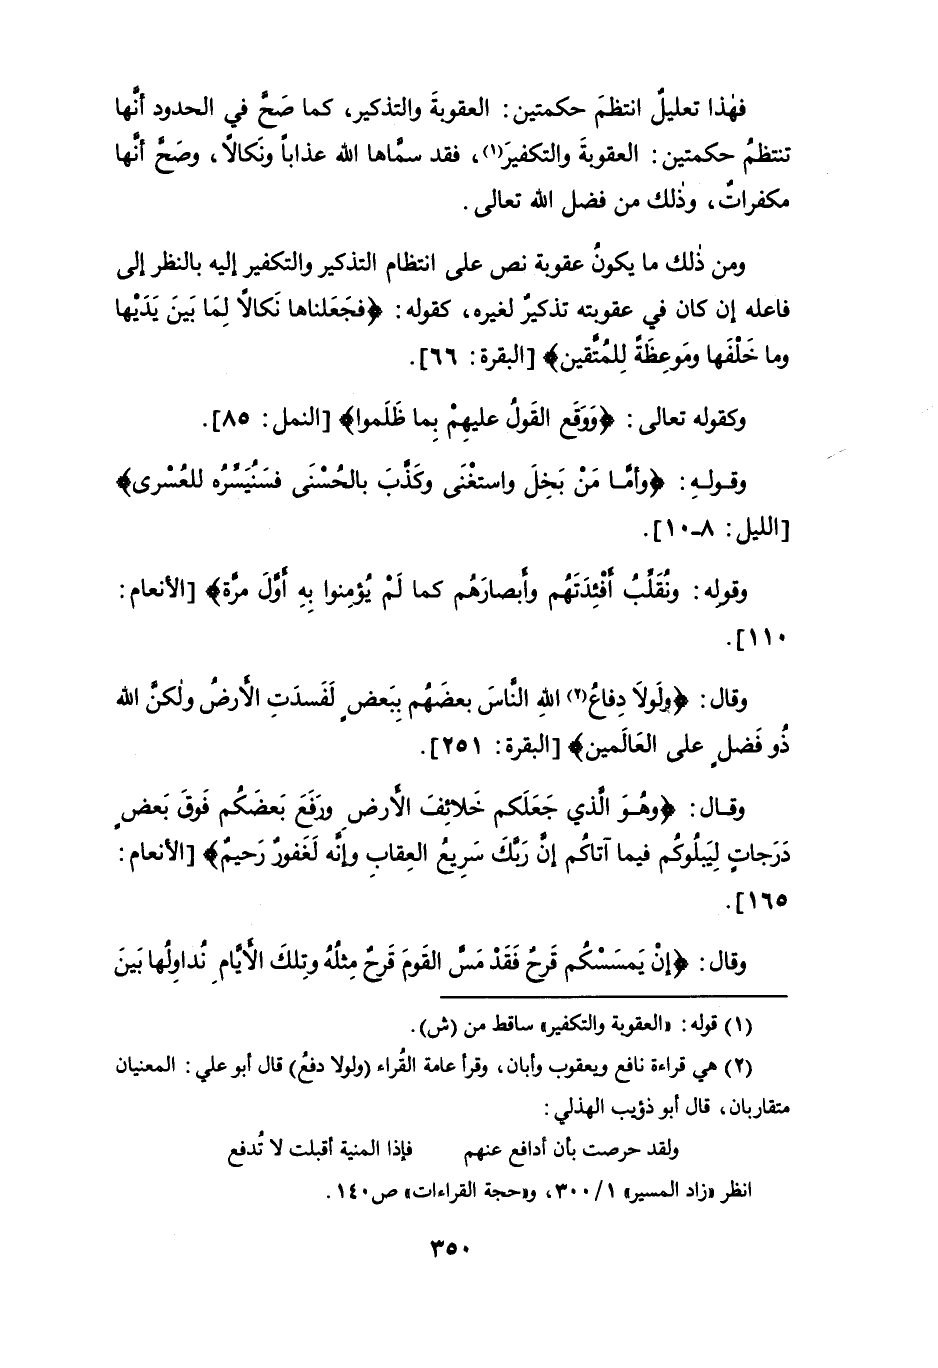 فهٰذا تعليلٌ انتظمَ حكمتين: العقوبةَ والتذكير، كما صَحَّ في الحدود أنَّها
تنتظمُ حكمتين: العقوبةَ والتكفيرَ(١)، فقد سمَّاها الله عذاباً ونَكالاً، وصَحَّ أنَّها
مكفراتٌ، وذٰلك من فضل الله تعالى.
ومن ذٰلك ما يكونُ عقوبة نص على انتظام التذكير والتكفير إليه بالنظر إلى
فاعله إن كان في عقوبته تذكيرٌ لغيره، كقوله: ﴿فجَعَلناها نَكالاً لِمَا بَينَ يَدَيْها
وما خَلْفَها ومَوعِظَةً لِلمُتَّقين﴾ [البقرة: ٦٦].
وكقوله تعالى: ﴿وَوَقَع القَولُ عليهِمْ بِما ظَلَموا﴾ [النمل: ٨٥].
وقـولـهِ: ﴿وأمَّـا مَنْ بَخِلَ واستغْنَى وكَذَّبَ بالحُسْنَى فسَنُيَسِّرُه للعُسْرى﴾
[الليل: ٨ـ١٠].
وقولِه: ونُقَلِّبُ أَفْئِدَتَهُم وأَبصارَهُم كما لَمْ يُؤمِنوا بِهِ أَوَّلَ مرَّة﴾ [الأنعام:
١١٠].
وقال: ﴿ولَولاَ دِفاعُ(٢) اللهِ النَّاسَ بعضَهُم بِبَعضٍ لَفَسدَتِ الأَرضُ ولٰكنَّ الله
ذُو فَضلٍ على العَالَمين﴾ [البقرة: ٢٥١].
وقـال: ﴿وهُـوَ الَّذي جَعَلَكم خَلائِفَ الأَرضِ ورَفَعَ بَعضَكُم فَوقَ بَعضٍ
دَرَجاتٍ لِيَبلُوكُم فيما آتاكُم إنَّ رَبَّكَ سَرِيعُ العِقابِ وإنَّه لَغَفورٌ رَحيمٌ﴾ [الأنعام:
١٦٥].
وقال: ﴿إنْ يَمسَسْكُم قَرحٌ فَقَدْ مَسَّ القَومَ قَرحٌ مِثلُهُ وتِلكَ الأَيَّامِ نُداولُها بَينَ
(١) قوله: «العقوبة والتكفير» ساقط من (ش).
(٢) هي قراءة نافع ويعقوب وأبان، وقرأ عامة القُراء (ولولا دفعُ) قال أبو علي: المعنيان
متقاربان، قال أبو ذؤيب الهذلي:
ولقد حرصت بأن أدافع عنهم فإذا المنية أقبلت لا تُدفع
انظر «زاد المسير» ١/ ٣٠٠، و«حجة القراءات» ص١٤٠.
٣٥٠